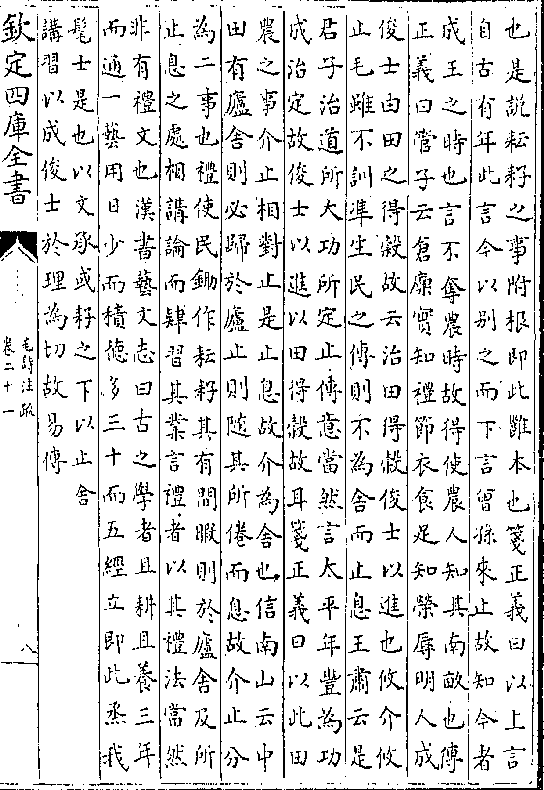 也是説耘耔之事附根即此雖本也箋正義曰以上言
自古有年此言今以别之而下言曾孫來止故知今者
成王之時也言不奪農時故得使農人知其南畝也傳
正義曰管子云倉廩實知禮節衣食足知榮辱明人成
俊士由田之得穀故云治田得穀俊士以進也攸介攸
止毛雖不訓準生民之傳則不為舍而止息王肅云是
君子治道所大功所定止傳意當然言太平年豐為功
成治定故俊士以進以田得穀故耳箋正義曰以此田
農之事介止相對止是止息故介為舍也信南山云中
田有廬舍則必歸於廬止則隨其所倦而息故介止分
為二事也禮使民鋤作耘耔其有間暇則於廬舍及所
止息之處相講論而肄習其業言禮者以其禮法當然
非有禮文也漢書藝文志曰古之學者且耕且養三年
而通一藝用日少而積德多三十而五經立即此烝我
髦士是也以文承或耔之下以止舍
講習以成俊士於理為切故易傳
欽定四庫全書
毛詩注疏
卷二十一
八